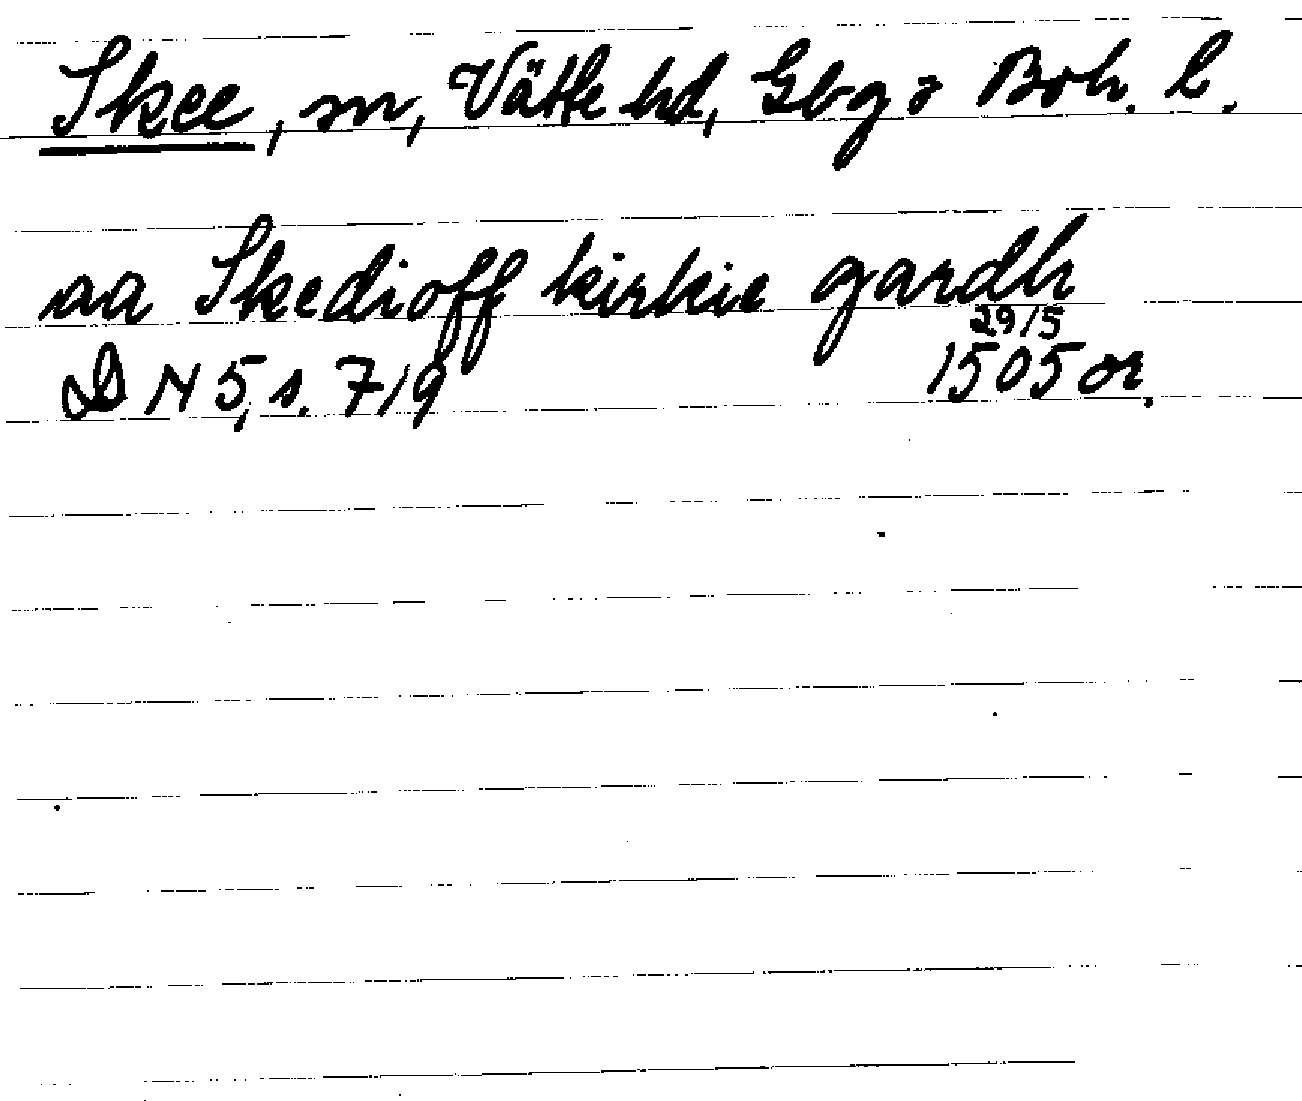 Skee, sn, Vätte hd, Gbg o Boh. l.
aa Skedioff kirkie gardh
29/5
DN 5, s. 719 1505 or.